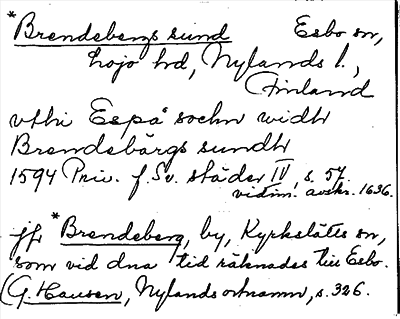 *Brendebergs sund Esbo sn,
Lojo hd, Nylands l.,
Finland
vthi Espå sochn widh
Brendebärgs sundh
1594 Priv. f. Sv. städer IV, s. 57.
vidim. avskr. 1636.
jfr *Brendeberg, by, Kyrkslätts sn,
som vid dna tid räknades till Esbo.
(G. Hausen, Nylands ortnamn, s. 326.